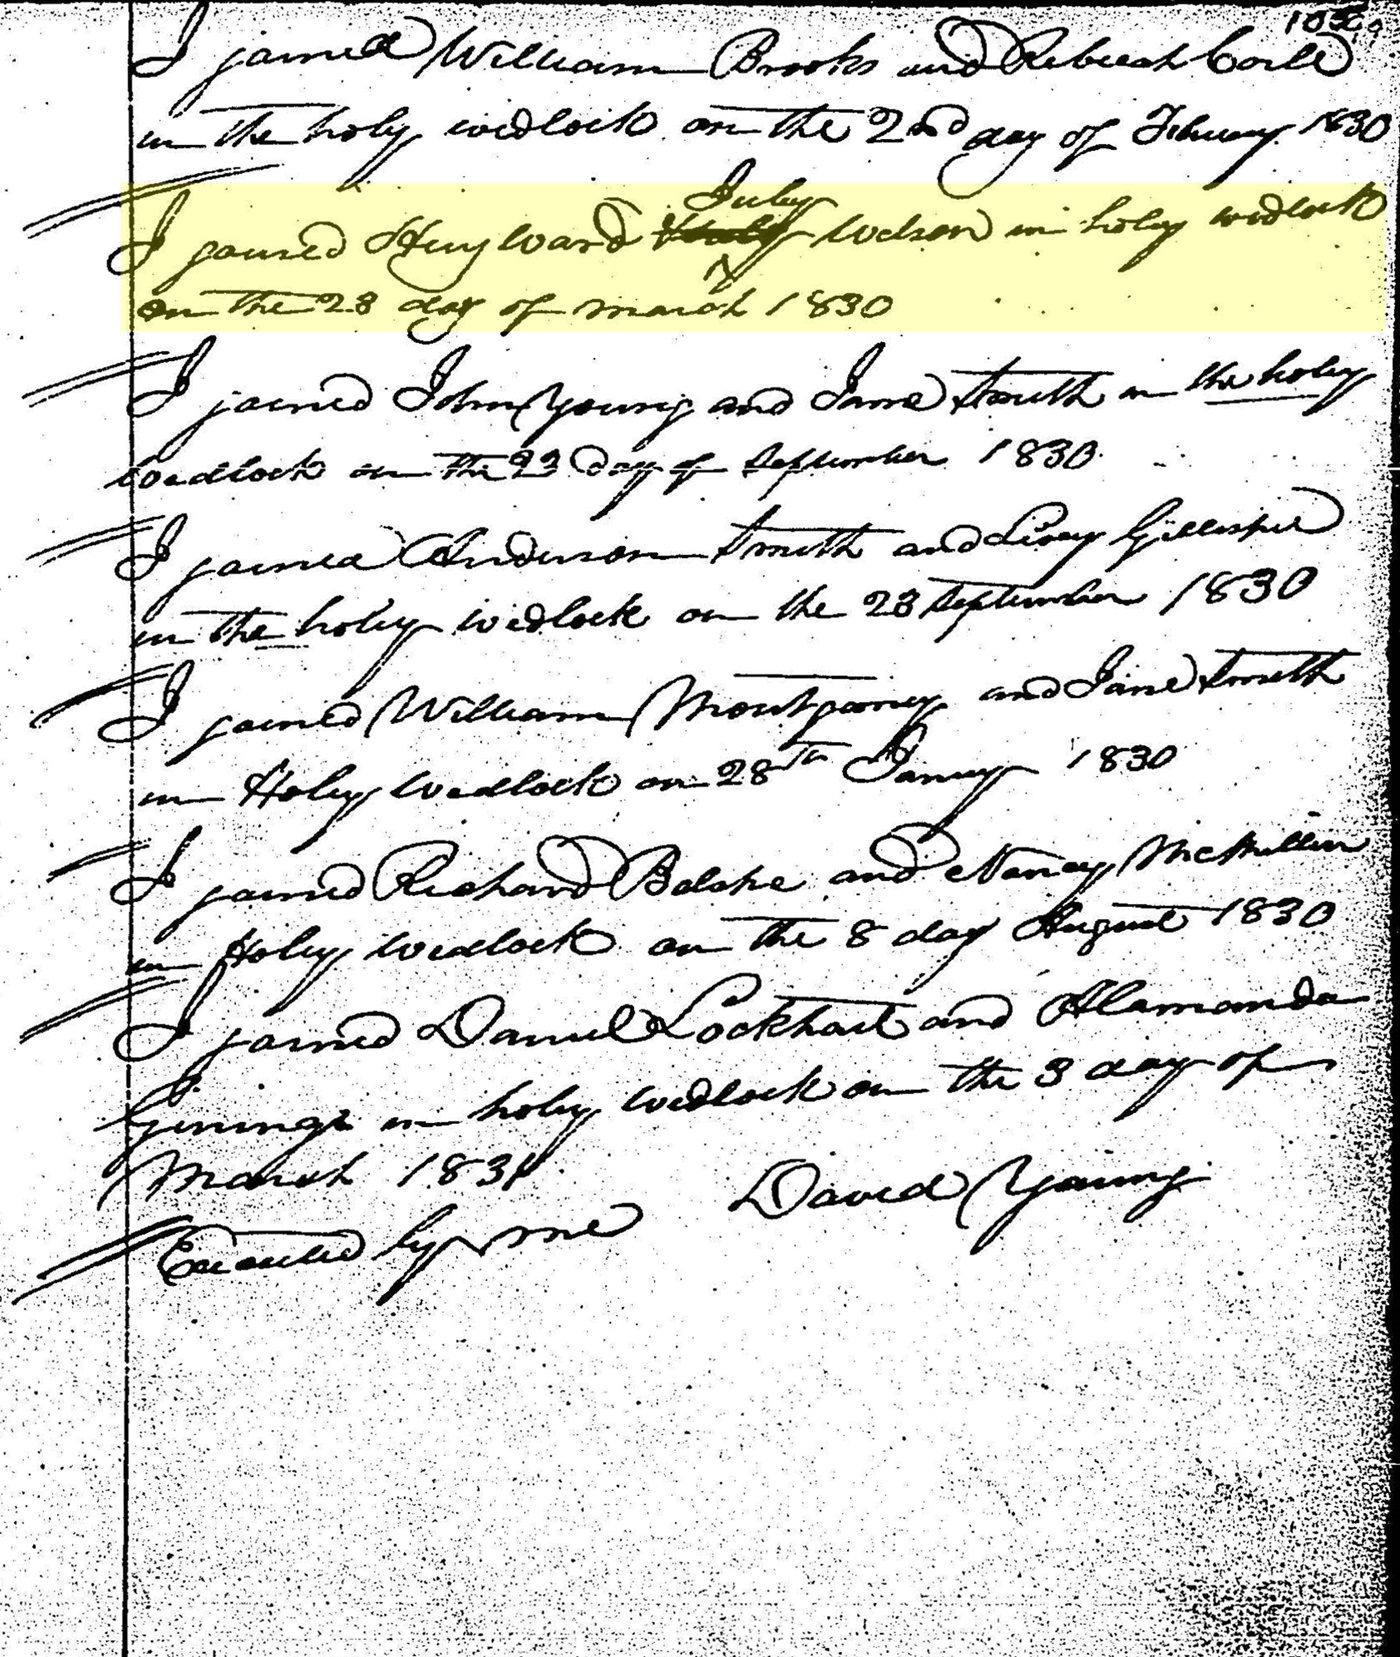 I joined William Brooks and Rebecah Coile
in the holy widlock on the 2nd day of Febuary 1830
July
I joined Huy Ward Welson in holy widlock
on the 23 day of march 1830
I joined John Young and Jane Smith in the holy
wedlock on the 23 day of September 1830
I joined Anderson Smith and Livey Gillespie
in the holy widlock on the 23 September 1830
I joined William Montgomey and Jane Smith
in Holy Wedlock on 28th Januy 1830
I joined Richard and Nancy McMillin
in Holy wedlock on the 8 day August 1830
I joined Daniel Lockhart and Alamanda
Ginings in holy wedlock on the 3 day of
March 1831
David Young
Executed by me